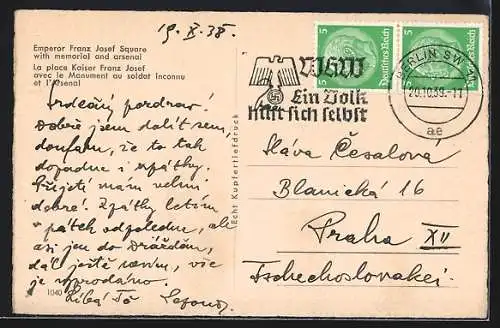 19. X. 38.
Emperor Franz Josef Square
with memorial and arsenal
La place Kaiser Franz Josef
avec le Monument au soldat Inconnu
et l'Arsenal
Srdečný pozdrav!
Dobře jsem dolít sem,
doufám, že to tak
dopadne i zpátky.
Přijetí mám velmi
dobré. Zpátky letím
v pátek odpoledne, ale
asi jen do Drážďan,
dál ještě nevím, vše
je vyprodáno.
Líbá Tě
1040
Echt Kupfertiefdruck
5 Deutsches Reich
5
WHW
Ein Volk
hilft sich selbst
BERLIN SW
20.10.38.-11
ae
Sláva Česalová
Blanická 16
Praha XII
Tschechoslovakei.